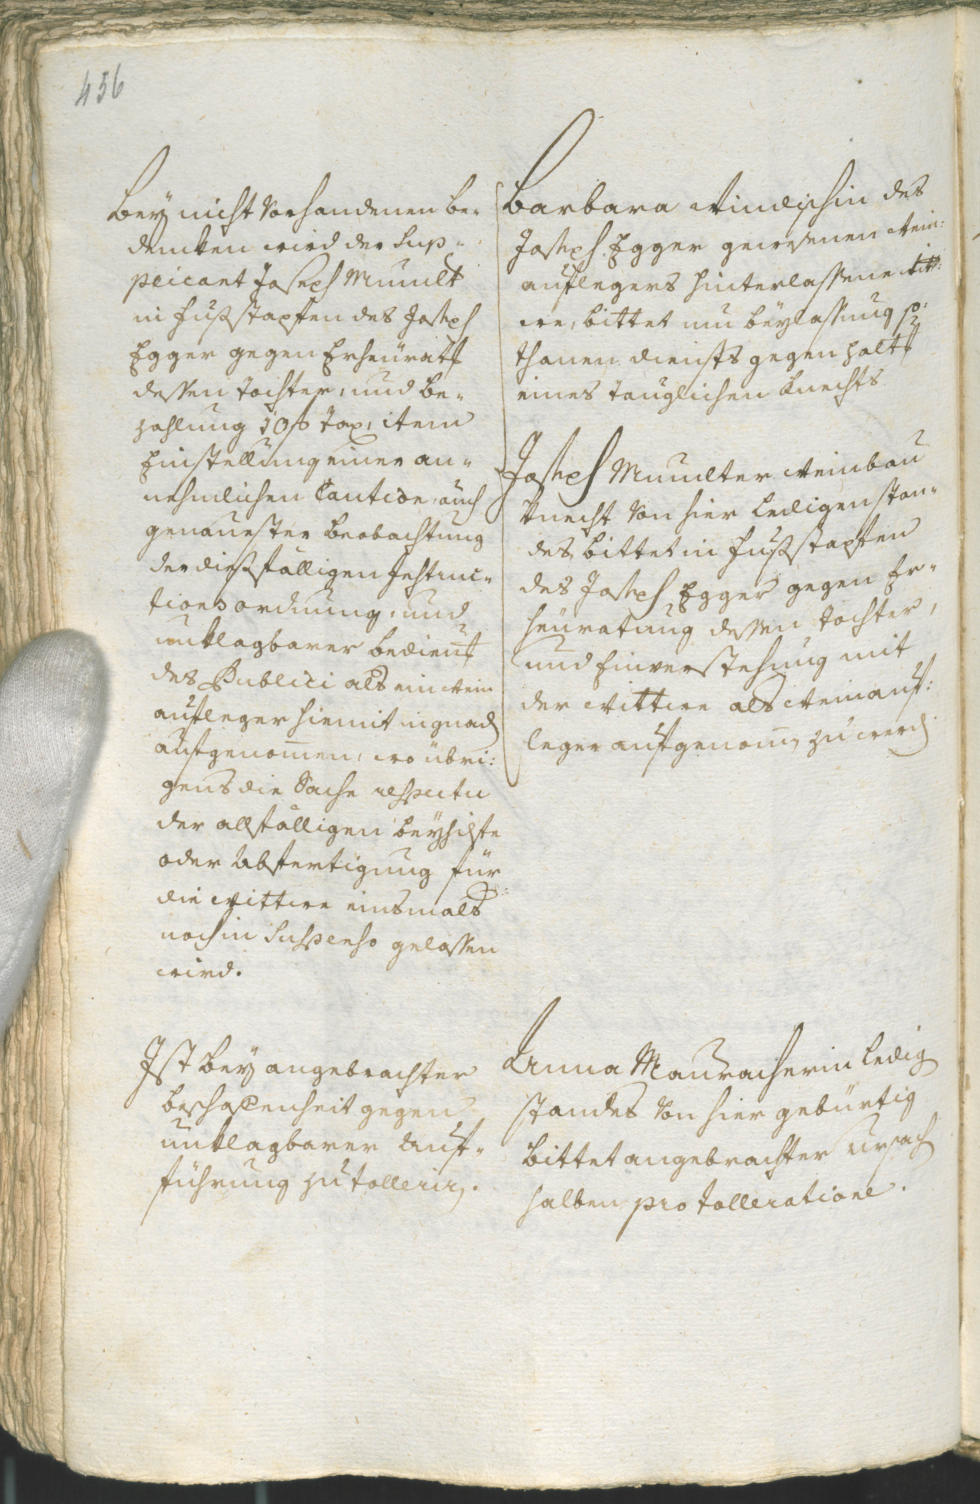 436
Bey nicht vorhandenen be-
dencken wird der Sup-
plicant Joseph Muult
in Fußstapfen des Joseph
Egger gegen Erheürath
dessen Tochter, und be-
zahlung 10 f Tax, item
Einstellung einer an-
nehmlichen Caution, auch
genauester beobachtung
der dießfälligen Instruc-
tions ordnung, und
unklagbarer bedienung
des Publici als ein Wein
aufleger hiemit in gnaden
aufgenommen, wo übri:
gens die Sache respectu
der allfälligen beyhilfe
oder Abfertigung für
die Wittwe einsmals
noch in Suspenso gelassen
wird.
Barbara Windischin des
Joseph Egger gewesenen Wein:
auflegers hinterlassene Witt:
we, bittet um beylassung so:
thanen diensts gegen halt
eines tauglichen Knechts
Joseph Muulter Weinbau
Knecht von hier ledigen stan-
des, bittet in Fußstapfen
des Joseph Egger gegen Er-
heüratung dessen Tochter,
und Einverstehung mit
der Wittwe als Weinauf:
leger aufgenomen zu werden
Ist bey angebrachter
beschaffenheit gegen
unklagbarer Auf-
führung zu tolleriren.
Anna Mauracherin ledig
standes von hier gebürtig
bittet angebrachter ursach
halben pro tolleratione.